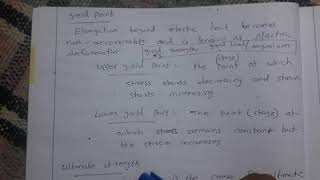 yield point
Elongation beyond elastic limit becomes
non-recoverable and is known as plastic
deformation yield strength = yield load /
Upper yield point : The point (stage) at which
stress starts decreasing and strain
starts increasing
Lower yield point : The point (stage) at
which stress remains constant but
the strain increases
Ultimate strength